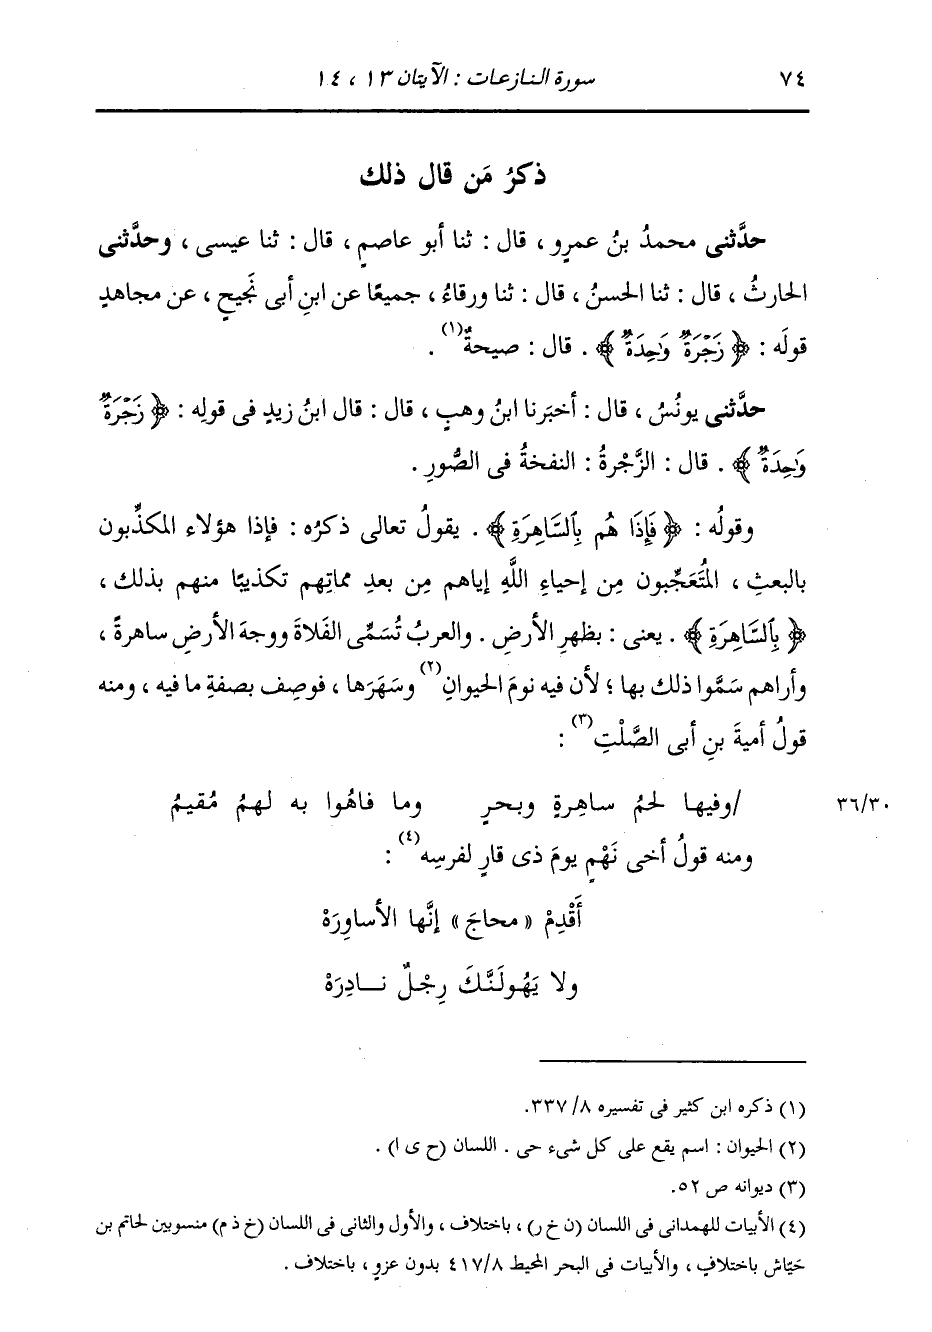 ٧٤ سورة النازعات : الآيتان ١٣ ، ١٤
ذكرُ مَن قال ذلك
حدَّثنى محمدُ بنُ عمرٍو ، قال : ثنا أبو عاصمٍ ، قال : ثنا عيسى ، وحدَّثنى
الحارثُ ، قال : ثنا الحسنُ ، قال : ثنا ورقاءُ ، جميعًا عن ابنِ أبى نَجيحٍ ، عن مجاهدٍ
قولَه : ﴿ زَجْرَةٌ وَٰحِدَةٌ ﴾ . قال : صيحةٌ(١) .
حدَّثنى يونُسُ ، قال : أخبَرنا ابنُ وهبٍ ، قال : قال ابنُ زيدٍ فى قولِه : ﴿ زَجْرَةٌ
وَٰحِدَةٌ ﴾ . قال : الزَّجْرةُ : النفخةُ فى الصُّورِ .
وقولُه : ﴿ فَإِذَا هُم بِٱلسَّاهِرَةِ ﴾ . يقولُ تعالى ذكرُه : فإذا هؤلاء المكذِّبون
بالبعثِ ، المُتَعَجِّبون مِن إحياءِ اللَّهِ إياهم مِن بعدِ مماتِهم تكذيبًا منهم بذلك ،
﴿ بِٱلسَّاهِرَةِ ﴾ . يعنى : بظهرِ الأرضِ . والعربُ تُسَمِّى الفَلاةَ ووجهَ الأرضِ ساهرةً ،
وأراهم سَمَّوا ذلك بها ؛ لأن فيه نومَ الحيوانِ(٢) وسَهَرَها ، فوصِف بصفةِ ما فيه ، ومنه
قولُ أميةَ بنِ أبى الصَّلْتِ(٣) :
٣٦/٣٠ /وفيها لحمُ ساهِرةٍ وبحرٍ وما فاهُوا به لهمُ مُقيمُ
ومنه قولُ أخى نَهْمٍ يومَ ذى قارٍ لفرسِه(٤) :
أَقْدِمْ « محاجَ » إنَّها الأساوِرَهْ
ولا يَهُولَنَّكَ رِجْلٌ نــادِرَهْ
(١) ذكره ابن كثير فى تفسيره ٨/ ٣٣٧.
(٢) الحيوان : اسم يقع على كل شىء حى . اللسان (ح ى ا) .
(٣) ديوانه ص ٥٢.
(٤) الأبيات للهمدانى فى اللسان (ن خ ر) ، باختلاف ، والأول والثانى فى اللسان (خ ذ م) منسوبين لحاتم بن
حَيّاش باختلافٍ ، والأبيات فى البحر المحيط ٨/ ٤١٧ بدون عزوٍ ، باختلاف .